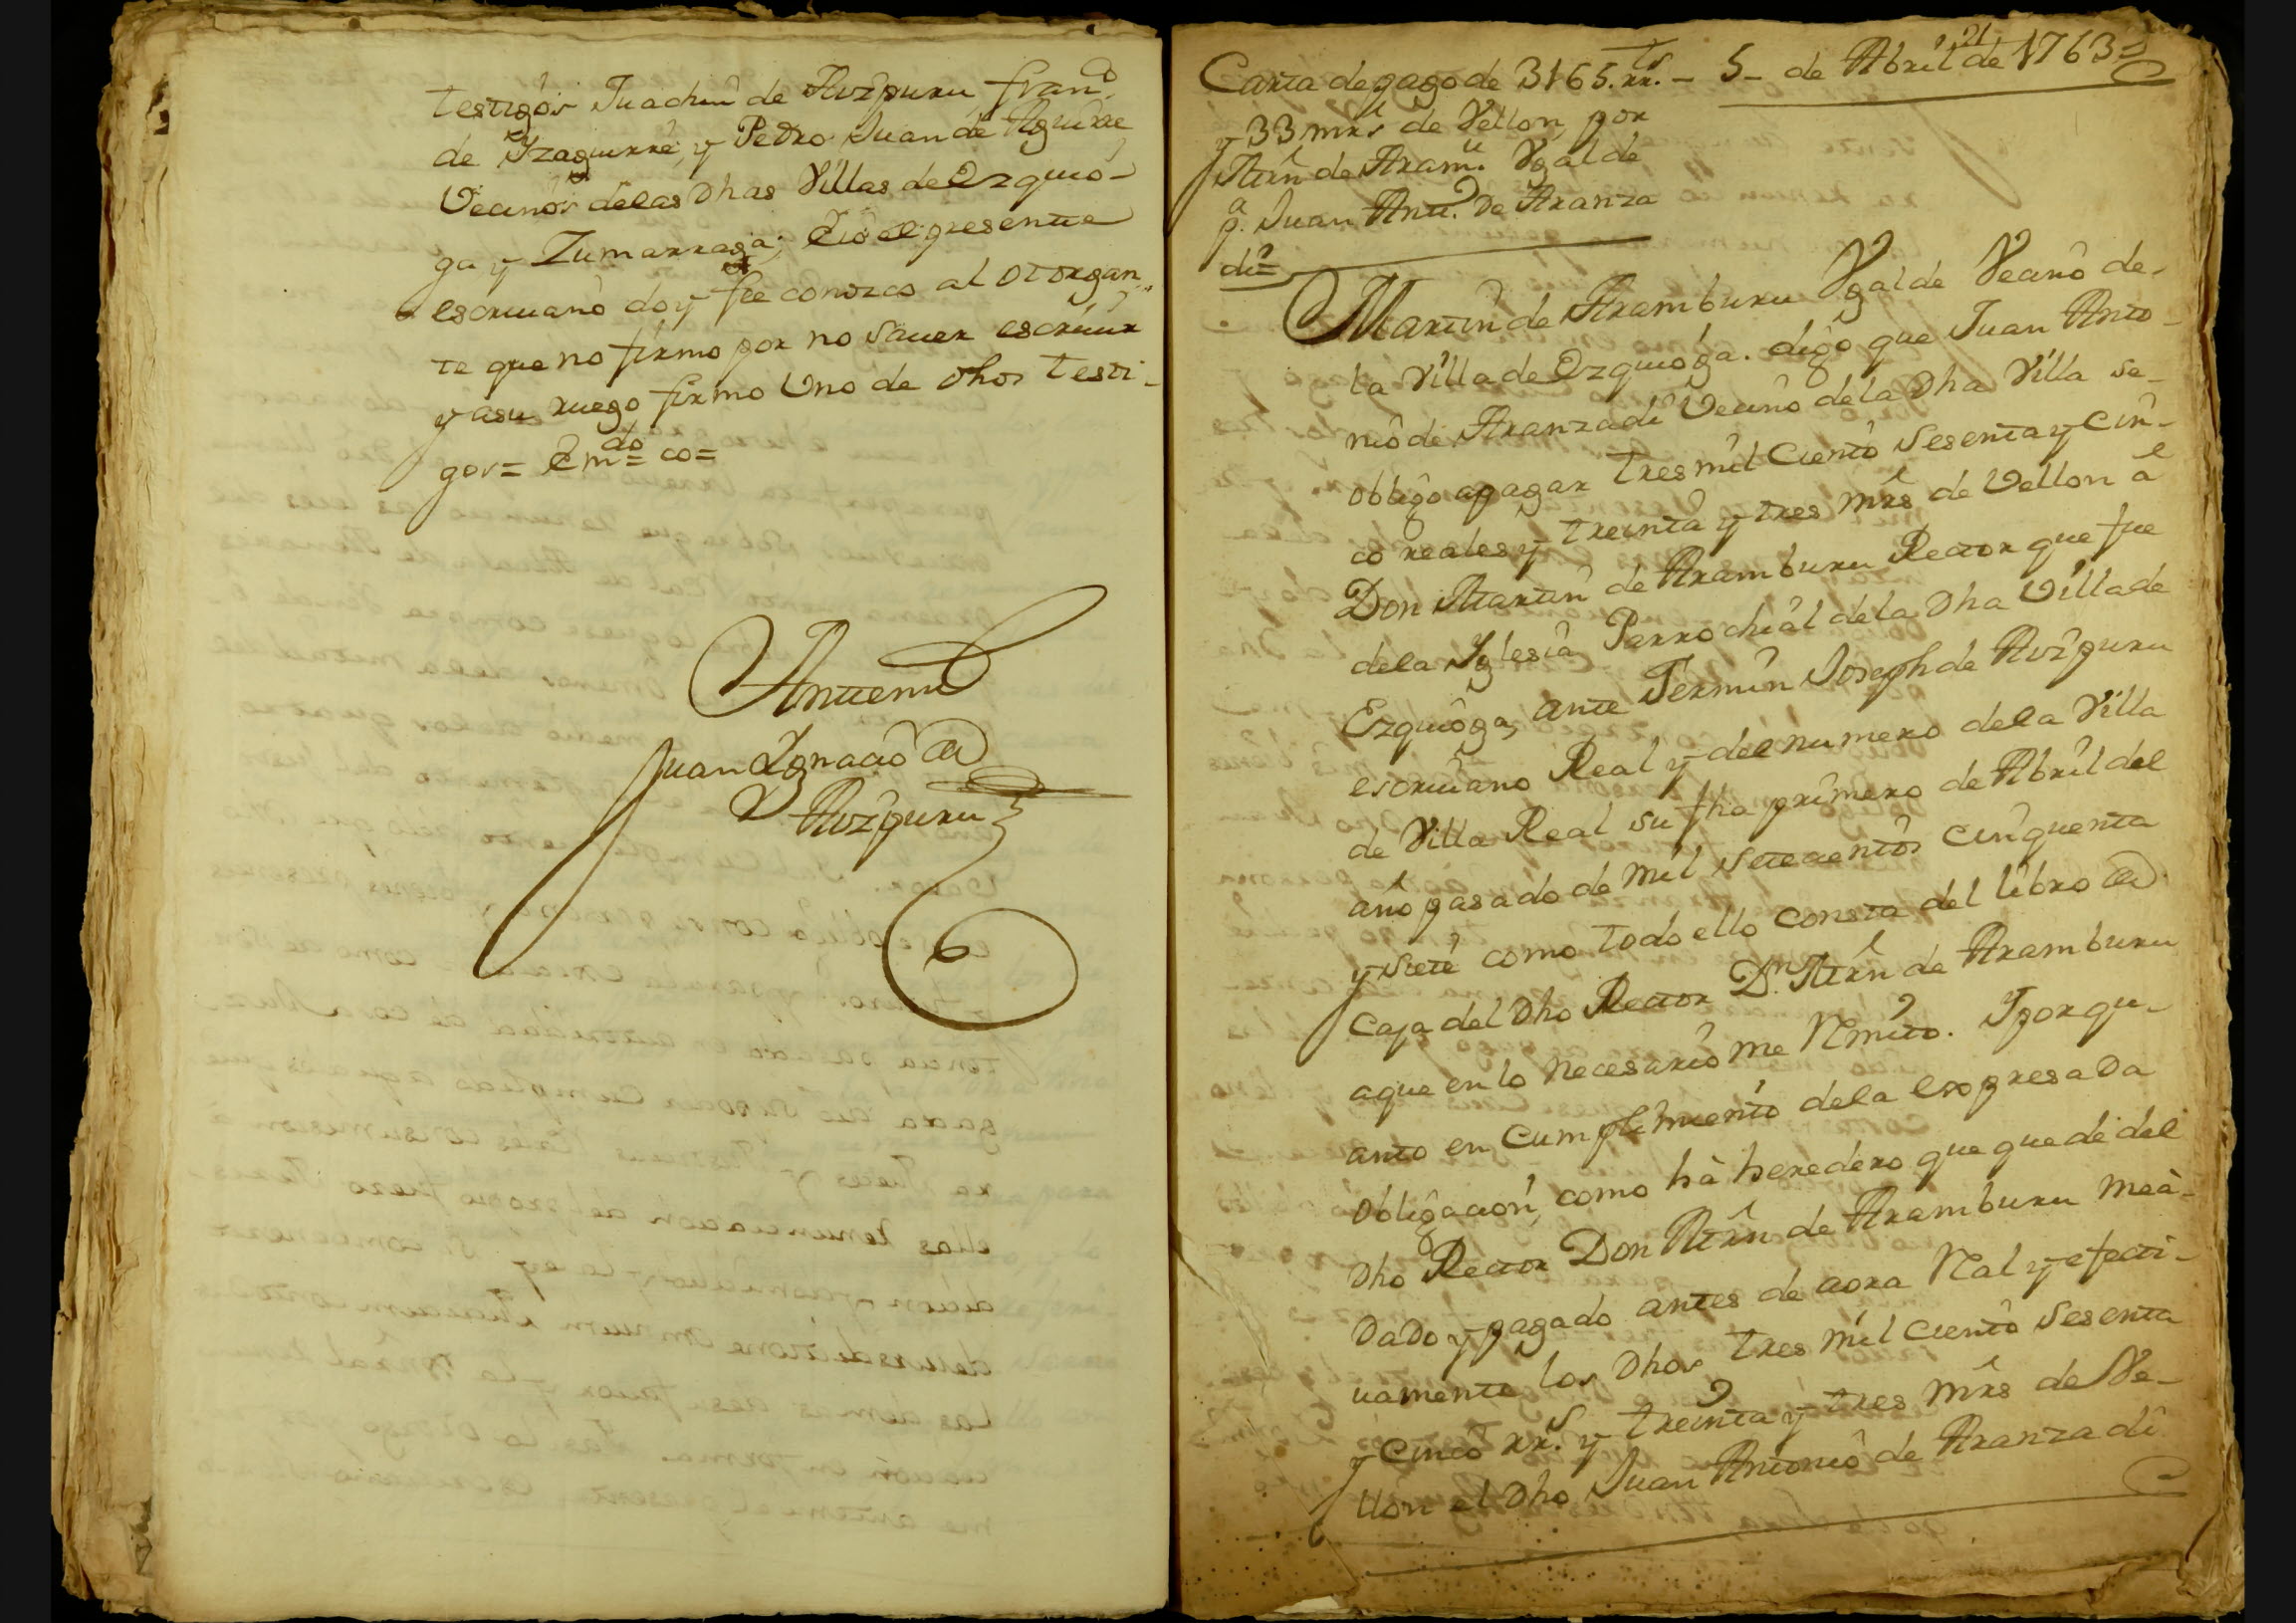 testigos Juachin de Aizpuru, Fran.co
de Yzaguirre, y Pedro Juan de Aguirre
Vecinos delas Dhas Villas de Ezquio-
ga y Zumarraga; È Yo el presente
escriuano doy fee conozco al otorgan-
te que no firmo por no sauer escriuir
y asu ruego firmo Uno de Dhos testi-
gos= Em.do= co=
Antemi
Juan Ygnacio de
Aizpuru
21
Carta de pago de 3165. rr.s - 5 - de Abril de 1763=
y 33 mrs de Vellon, por
Mrn de Aram.u Vgalde
p.a Juan Ant.o de Aranza
di=
Martin de Aramburu Vgalde Vecino de-
la Villa de Ezquioga. digo que Juan Anto-
nio de Aranzadi Vecino dela Dha Villa se-
obligo apagar tres mil Ciento Sesenta y Cin-
co reales y treinta y tres mrs de Vellon à
Don Martin de Aramburu Rector que fue
dela Yglesia Parrochial dela Dha Villa de
Ezquioga, ante Fermin Joseph de Aizpuru
escriuano Real y del numero dela Villa
de Villa Real su fha primero de Abril del
año pasado de mil Setecientos Cinquenta
y Siete como todo ello Consta del libro de
Caja del Dho Rector D.n Mrn de Aramburu
aque en lo necesario me Rmito. Y porqu-
anto en Cumplimiento dela expresada
obligacion, como hà heredero que quede del
Dho Rector Don Mrn de Aramburu meà-
Dado y pagado antes de aora Ral y efecti-
uamente los Dhos tres mil Ciento Sesenta
y Cinco rr.s y treinta y tres mrs de Ve-
llon el Dho Juan Antonio de Aranzadi